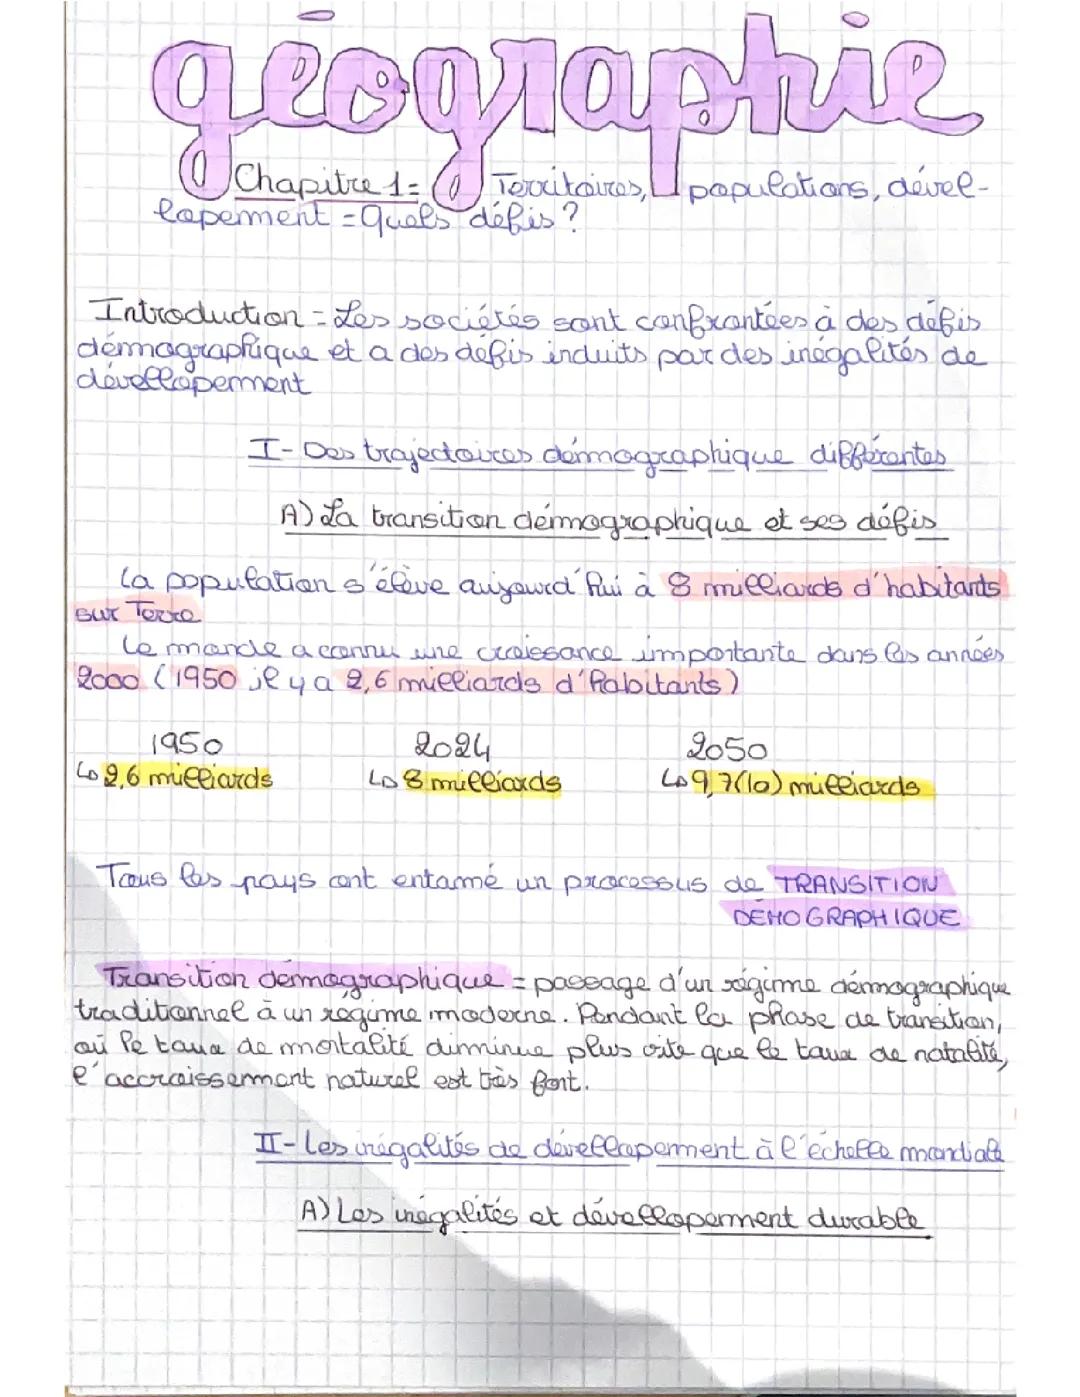 géographie
Chapitre 1 = Territoires, populations, dével-
lopement = Quels défis ?
Introduction = Les sociétés sont confrontées à des défis
démographique et a des défis induits par des inégalités de
dévellopement
I- Des trajectoires démographique différentes
A) La transition démographique et ses défis
la population s'élève aujourd'hui à 8 milliards d'habitants
sur Terre
Le monde a connu une croissance importante dans les années
2000 (1950 il y a 2,6 milliards d'habitants)
1950 2024 2050
↳ 2,6 milliards ↳ 8 milliards ↳ 9,7(10) milliards
Tous les pays ont entamé un processus de TRANSITION
DÉMOGRAPHIQUE
Transition démographique = passage d'un régime démographique
traditionnel à un régime moderne. Pendant la phase de transition,
où le taux de mortalité diminue plus vite que le taux de natalité,
l'accroissement naturel est très fort.
II- Les inégalités de dévellopement à l'échelle mondiale
A) Les inégalités et dévellopement durable